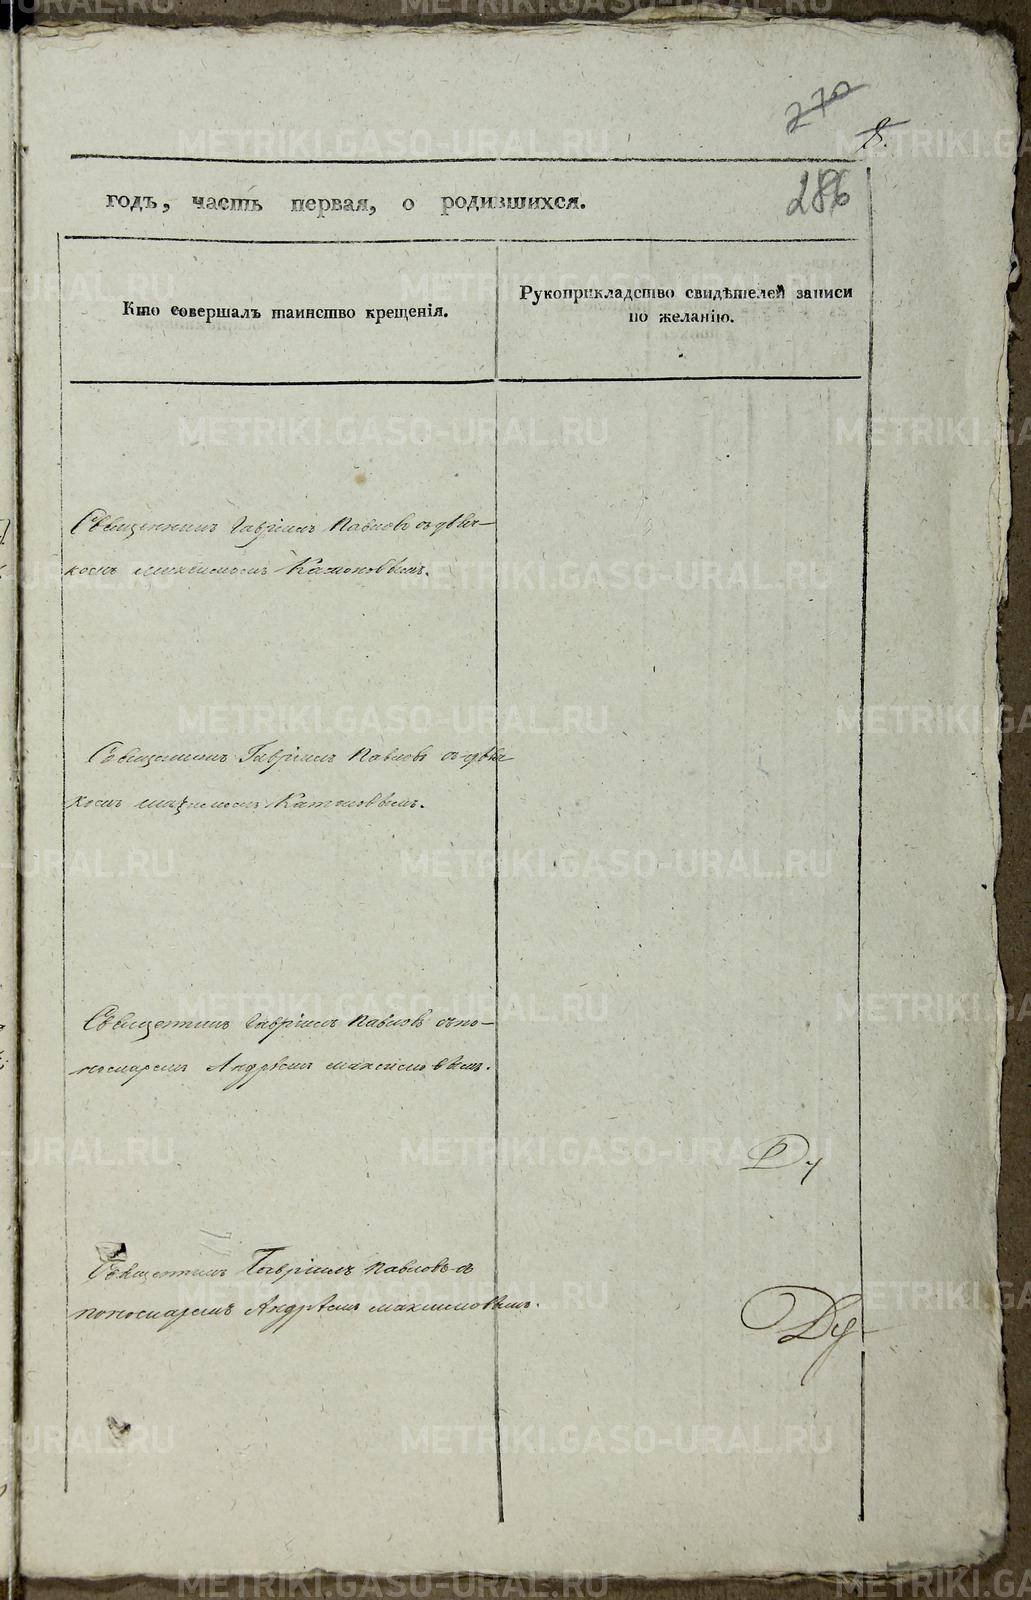 270
8.
286
годъ, часть первая, о родившихся.
Кто совершалъ таинство крещенія.
Рукоприкладство свидѣтелей записи
по желанію.
Священникъ Гавріилъ Павловъ съ дьяч-
комъ Максимомъ
Священникъ Гавріилъ Павловъ съ дьяч
комъ Максимомъ
Священникъ Гавріилъ Павловъ съ по-
номаремъ Андреемъ Максимовымъ.
Священникъ Гавріилъ Павловъ съ
пономаремъ Андреемъ Максимовымъ.
METRIKI.GASO-URAL.RU